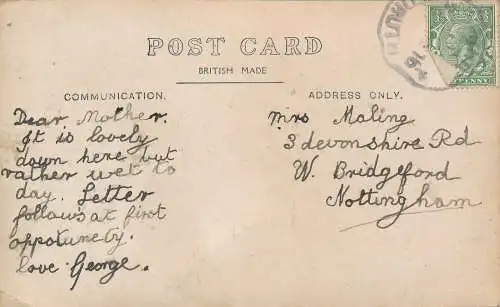 POST CARD
BRITISH MADE
COMMUNICATION.
ADDRESS ONLY.
Dear Mother.
It is lovely
down here but
rather wet to
day. Letter
follows at first
oppotunety.
love George.
Mrs Maling
3 devonshire Rd
W. Bridgeford
Nottingham
PENNY